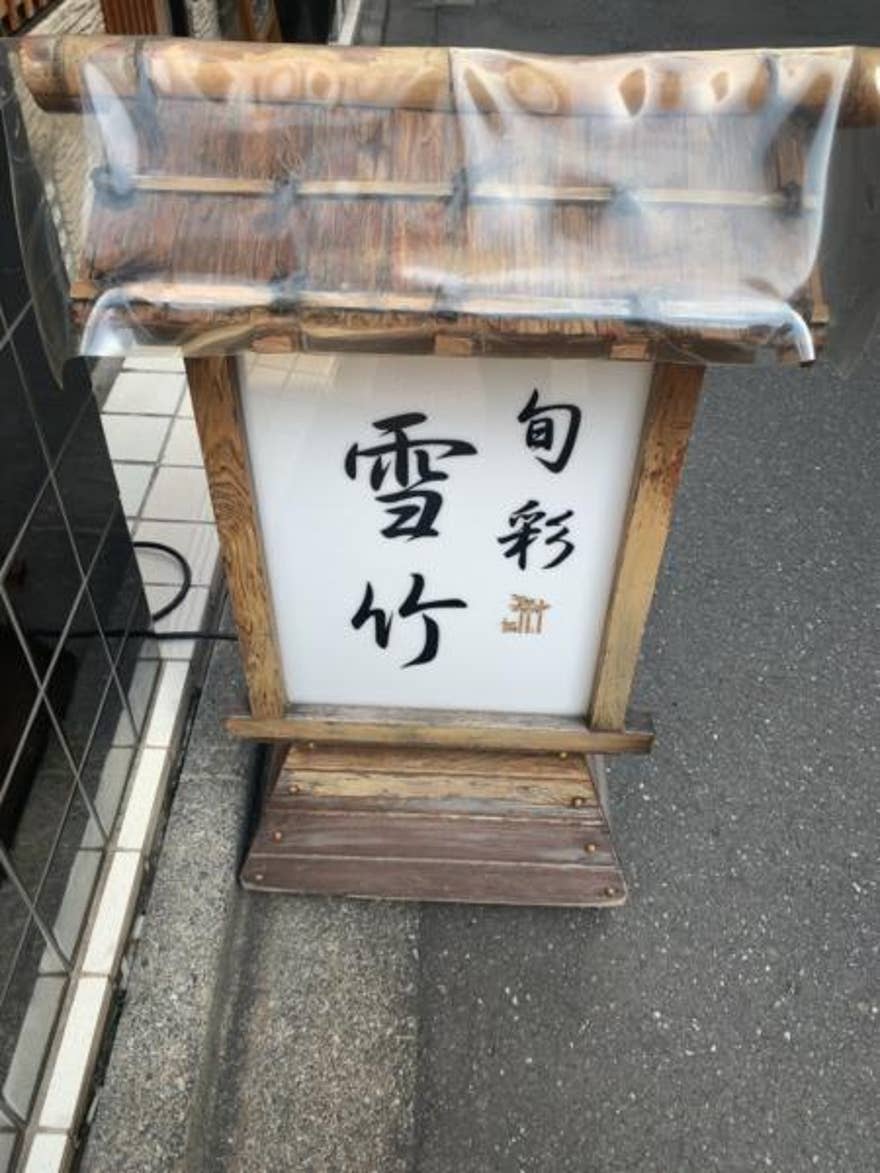 旬彩
雪竹